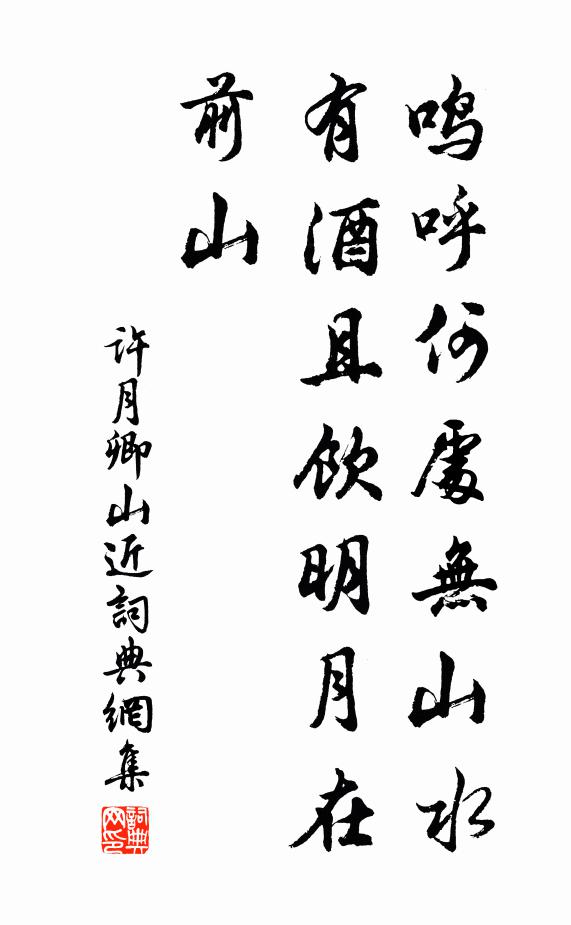 鳴呼何處無山水
有酒且飲明月在
前山
許月卿山近詞典網集
詞典網印